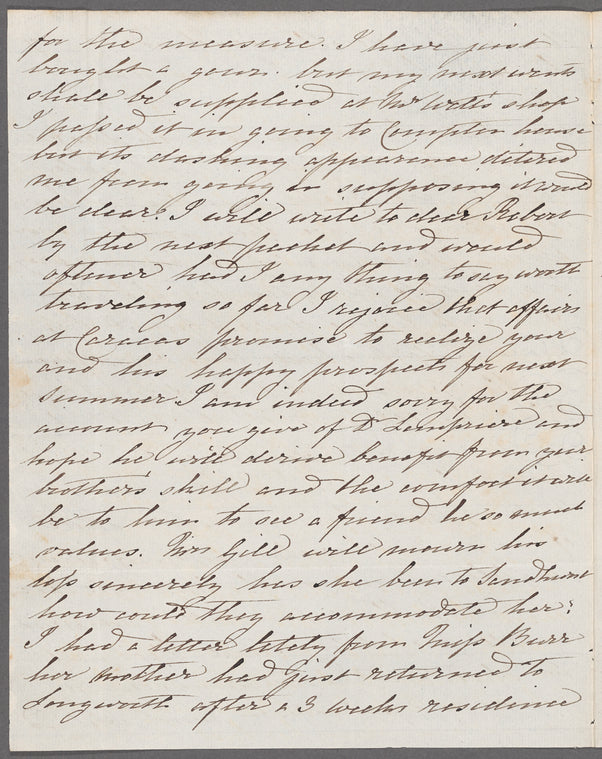 for the measure. I have just
bought a gown. but my next wants
shall be supplied at Mr Well's shop
I passed it in going to Compton house
but its dashing appearance ditered
me from going in supposing it would
be dear. I will write to dear Robert
by the next packet and would
oftener had I any thing to say worth
traveling so far I rejoice that affairs
at Caracas promise to realize your
and his happy prospects for next
summer I am indeed sorry for the
account you give of Dr Lempriere and
hope he will derive benefit from your
brother's skill and the comfort it will
be to him to see a friend he so much
values. Mrs Gill will mourn his
loss sincerely has she been to Sandhurst
how could they accommodate her?
I had a letter lately from Miss Burr
her mother had just returned to
Longworth after a 3 weeks residence